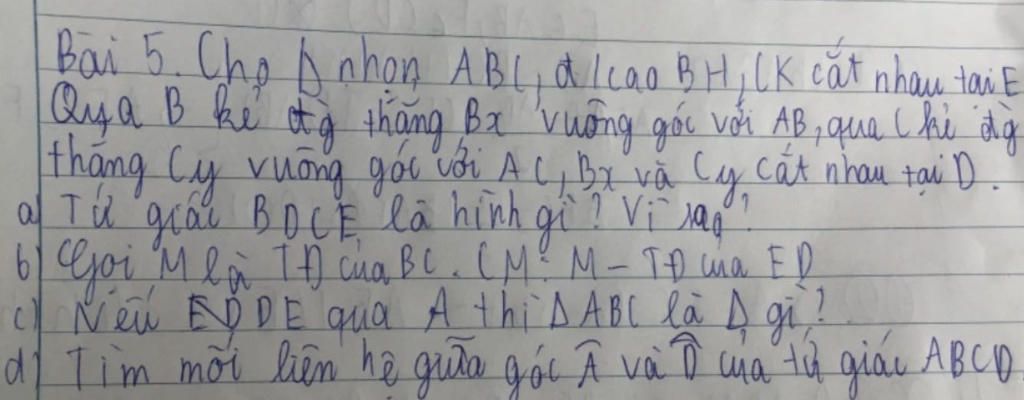 Bài 5. Cho Δ nhọn ABC, đ/cao BH, CK cắt nhau tại E
Qua B kẻ đg thẳng Bx vuông góc với AB, qua C kẻ đg
thẳng Cy vuông góc với AC, Bx và Cy cắt nhau tại D.
a) Tứ giác BDCE là hình gì? Vì sao?
b) Gọi M là TĐ của BC. CM: M - TĐ của ED
c) Nếu DE qua A thì ΔABC là Δ gì?
d) Tìm mối liên hệ giữa góc Â và D̂ của tứ giác ABCD